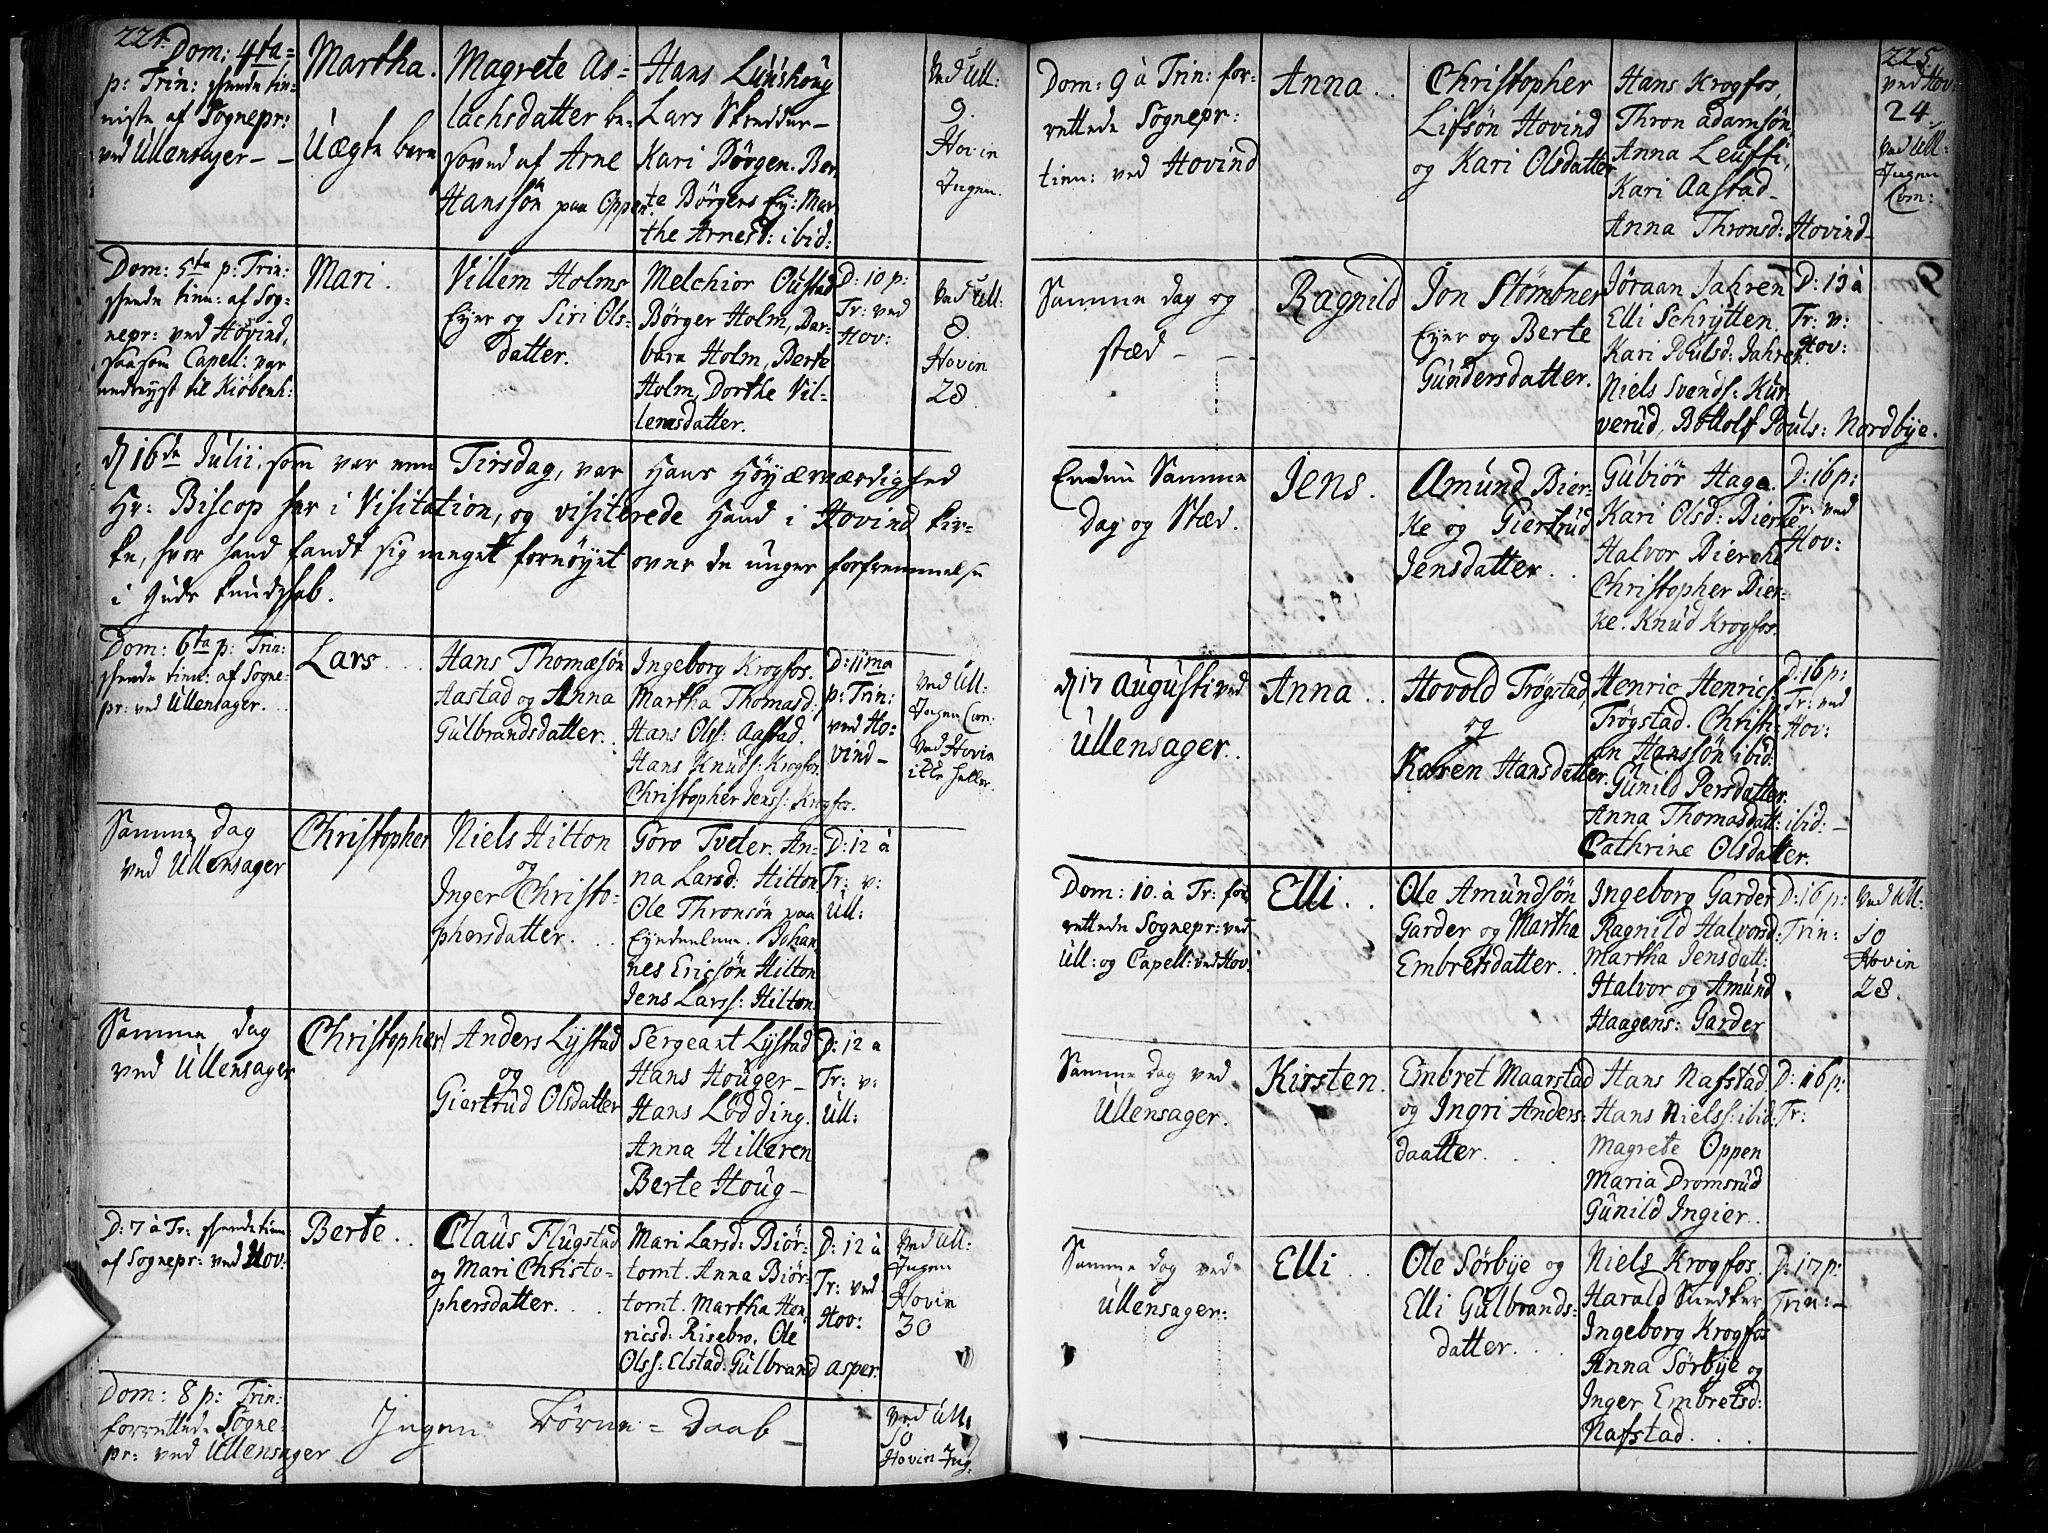 224.
Dom: 4ta
p: Trin: skeede tie-
niste af Sognepr:
ved Ullensager
Martha.
Uægte barn
Magrete As-
lachsdatter be-
soved af Arne
Hanssøn paa Oppen
Hans
Lars Skredder
Kari Børgen. Ber-
te Børgens Ey: Mar-
the Arnesd: ibid:
Ved Ull:
9.
Hovin
Ingen.
Dom: 5ta p: Trin:
skeede tien: af Sog-
nepr: ved Hovind,
saasom Capell: var
nedreyst til Kiøbenh:
Mari.
Villem Holms
Eyer og Siri Ols-
datter.
Melchior Oustad
Børger Holm, Bar-
bara Holm, Berte
Holm, Dorthe Vil-
lemsdatter.
D: 10 p:
Tr: ved
Hov:
Ved Ull:
8.
Hovin
28
d 16de Julii, som var een Tirsdag, var Hans Høyærværdighed
Hr: Biscop her i Visitation, og visiterede Hand i Hovind Kir-
ke, hvor Hand fandt sig meget fornøyet over de unges forfremmelse
i Guds kundskab.
Dom: 6ta p: Trin:
skeede tien: af Sogne-
pr: ved Ullensager.
Lars
Hans Thomæsøn
Aastad og Anna
Gulbrandsdatter.
Ingeborg Krogfos.
Martha Thomasd:
Hans Olss: Aastad.
Hans Knuds: Krogfos.
Christopher Jenss: Krogfos.
D: 11ma
p: Trin:
ved Ho-
vind
Ved Ull:
Ingen Com:
Ved Hovin
ikke heller.
Samme dag
ved Ullensager
Christopher
Niels Hilton
og
Inger Christo-
phersdatter.
Goro Tveter. An-
na Larsd: Hilton
Ole Thronsøn paa
Johan
nes Ericsøn Hilton
Jens Larss: Hilton
D: 12 à
Tr: v:
Ull:
Samme dag
ved Ullensager
Christopher
Anders Lystad
og
Giertrud Olsdatter
Sergeant Lystad
Hans Houger
Hans Lødding.
Anna Hilleren
Berte Houg
D: 12 a
Tr: v:
Ull:
D: 7 à Tr: skeede tien
af Sognepr: ved Hov:
Berte.
Claus Flugstad
og Mari Christo-
phersdatter.
Mari Larsd: Biør-
tomt. Anna Biør-
tomt. Martha Hen-
ricsd: Risebro. Ole
Olss: Elstad. Gulbrand asper.
D: 12 à
Tr: ved
Hov:
Ved Ull:
Ingen
Hovin
30
Dom: 8 p: Trin:
forrettede Sogne-
pr: ved Ullensager
Ingen Børne-Daab
Ved Ull:
10
Hovin Ing:
225.
Dom: 9 à Trin: for-
rettede Sognepr:
tien: ved Hovind
Anna
Christopher
Lifsøn Hovind
og Kari Olsdatter
Hans Krogfos,
Thron Adamsøn
Anna
Kari Aastad
Anna Thronsd: Hovind
ved Hov:
24.
Ved Ull:
Ingen
Com:
Samme dag og
sted
Ragnild
Jon Stømbner
Eyer og Berte
Gundersdatter.
Jøraan Jahren
Elli Schrytten
Kari Poulsd: Jahren
Niels Svends: Kur-
verud, Bottolf Pouls: Nordbye.
D: 13 à
Tr: v:
Hov:
Endnu Samme
Dag og Sted.
Jens.
Amund Bier-
ke og Giertrud
Jensdatter.
Gubiør Haga.
Kari Olsd: Bierke
Halvor Bierche
Christopher Bier-
ke. Knud Krogfos.
D: 16 p:
Tr: ved
Hov:
d 17 Augusti ved
Ullensager.
Anna
Hovold Trøgstad
og
Karen Hansdatter.
Henric Henrics:
Trøgstad. Christi-
an Hanssøn ibid.
Gunild Persdatter.
Anna Thomasdatt: ibid:
Cathrine Olsdatter.
D: 16 p:
Tr: ved
Hov:
Dom: 10. à Tr: for
rettede Sognepr: ved
Ull: og Capell: ved Hov:
Elli
Ole Amundsøn
Garder og Martha
Embretsdatter.
Ingeborg Garder
Ragnild Halvorsd:
Martha Jensdatt:
Halvor og Amund
Haagens: Garder
D: 16 p:
Trin:
Ved Ull:
10
Hovin
28.
Samme dag ved
Ullensager.
Kirsten.
Embret Maarstad
og Ingri Anders:
daatter.
Hans Nafstad
Hans Nielss: ibid:
Magrete Oppen
Maria Dromsrud
Gunild Ingier.
D: 16 p:
Tr:
Samme dag ved
Ullensager:
Elli
Ole Sørbye og
Elli Gulbrands-
datter.
Niels Krogfos.
Harald
Ingeborg Krogfos
Anna Sørbye og
Inger Embretsd:
Nafstad.
D: 17 p:
Trin: